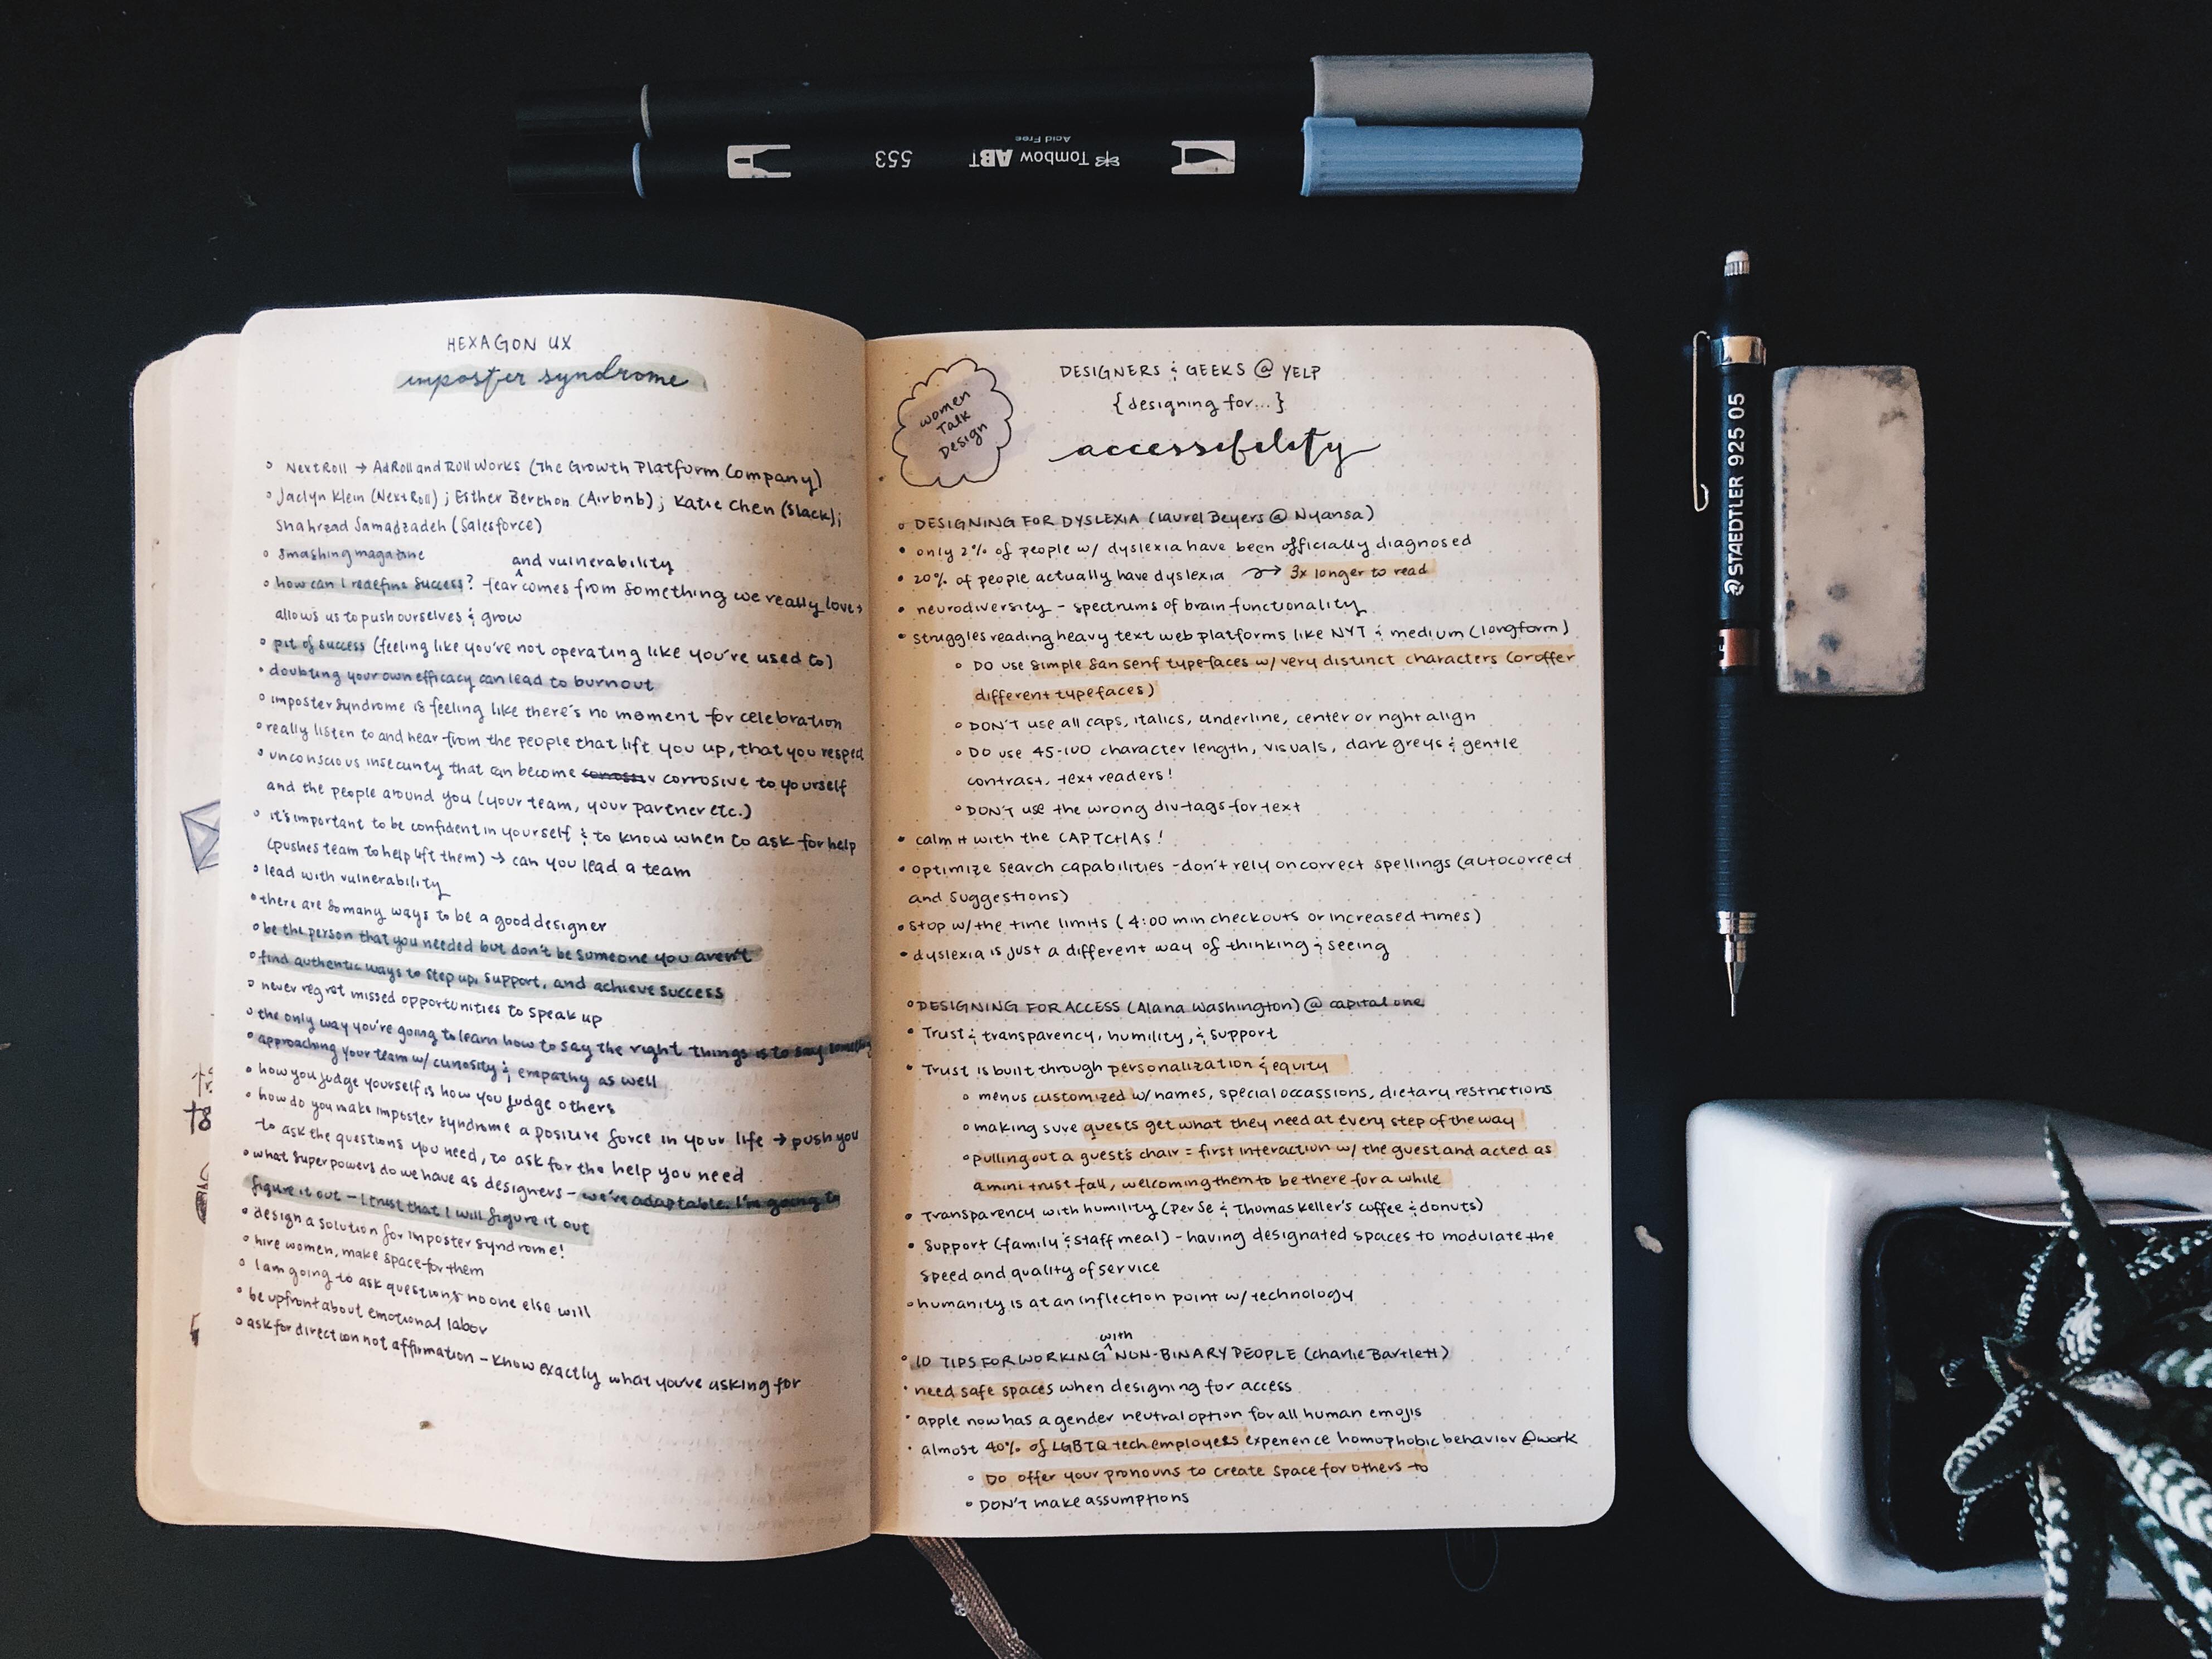 553
Tombow ABT
Acid Free
STAEDTLER 925 05
HEXAGON UX
imposter syndrome
NextRoll → AdRoll and RollWorks (The Growth Platform Company)
Jaclyn Klein (NextRoll) ; Esther Berthon (Airbnb) ; Katie Chen (Slack);
Shahrzad Samadzadeh (Salesforce)
Smashing magazine
and vulnerability
how can I redefine success? fear ^ comes from something we really love →
allows us to push ourselves & grow
pit of success (feeling like you're not operating like you're used to)
doubting your own efficacy can lead to burnout
imposter syndrome is feeling like there's no moment for celebration
really listen to and hear from the people that lift you up, that you respect
unconscious insecurity that can become corrosive to yourself
and the people around you (your team, your partner etc.)
it's important to be confident in yourself & to know when to ask for help
(pushes team to help lift them) → can you lead a team
lead with vulnerability
there are so many ways to be a good designer
be the person that you needed but don't be someone you aren't
find authentic ways to step up, support, and achieve success
never regret missed opportunities to speak up
the only way you're going to learn how to say the right things is to say something
approaching your team w/ curiosity & empathy as well
how you judge yourself is how you judge others
how do you make imposter syndrome a positive force in your life → push you
to ask the questions you need, to ask for the help you need
what superpowers do we have as designers - we're adaptable. I'm going to
figure it out - I trust that I will figure it out
design a solution for imposter syndrome!
hire women, make space for them
I am going to ask questions no one else will
be upfront about emotional labor
ask for direction not affirmation - know exactly what you're asking for
women
Talk
Design
DESIGNERS & GEEKS @ YELP
{designing for...}
accessibility
DESIGNING FOR DYSLEXIA (Laurel Beyers @ Nyansa)
only 2% of people w/ dyslexia have been officially diagnosed
20% of people actually have dyslexia → 3x longer to read
neurodiversity - spectrums of brain functionality
struggles reading heavy text web platforms like NYT & medium (longform)
DO use simple san serif typefaces w/ very distinct characters (or offer
different typefaces)
DON'T use all caps, italics, underline, center or right align
DO use 45-100 character length, visuals, dark greys & gentle
contrast, text readers!
DON'T use the wrong div-tags for text
calm it with the CAPTCHAs!
optimize search capabilities - don't rely on correct spellings (autocorrect
and suggestions)
stop w/ the time limits (4:00 min checkouts or increased times)
dyslexia is just a different way of thinking & seeing
DESIGNING FOR ACCESS (Alana Washington) @ capital one
Trust & transparency, humility, & support
Trust is built through personalization & equity
menus customized w/ names, special occassions, dietary restrictions
making sure guests get what they need at every step of the way
pulling out a guest's chair = first interaction w/ the guest and acted as
a mini trust fall, welcoming them to be there for a while
Transparency with humility (Per Se & Thomas Keller's coffee & donuts)
Support (family & staff meal) - having designated spaces to modulate the
speed and quality of service
humanity is at an inflection point w/ technology
with
10 TIPS FOR WORKING ^ NON-BINARY PEOPLE (Charlie Bartlett)
need safe spaces when designing for access
apple now has a gender neutral option for all human emojis
almost 40% of LGBTQ tech employees experience homophobic behavior @ work
DO offer your pronouns to create space for others to
DON'T make assumptions